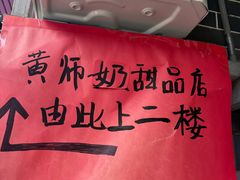 黄师奶甜品店
由此上二楼